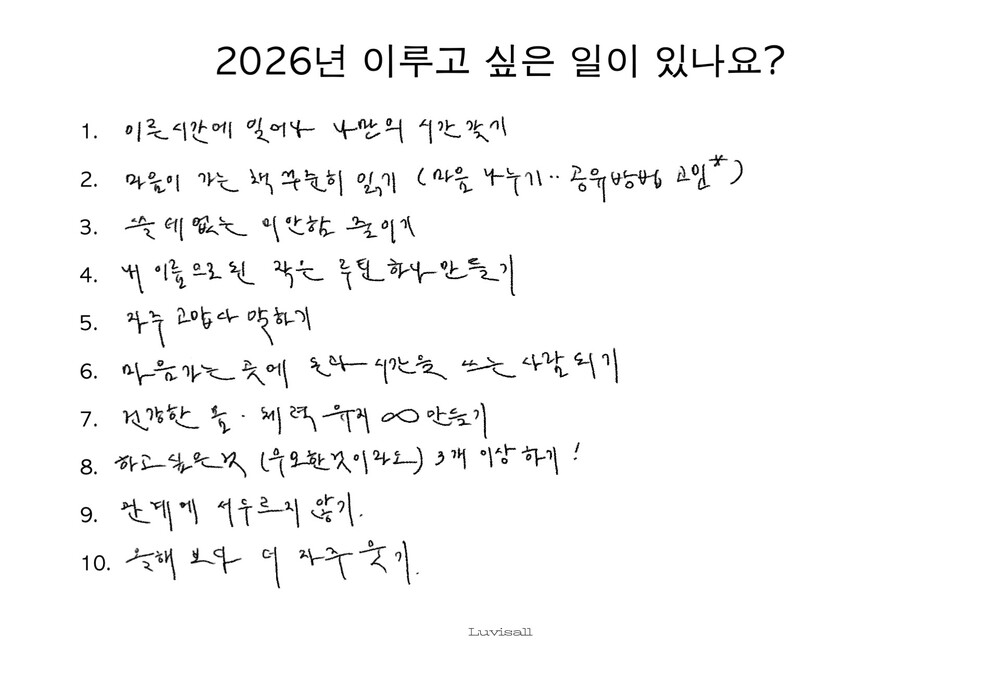 2026년 이루고 싶은 일이 있나요?
1. 이른시간에 일어나 나만의 시간갖기
2. 마음이 가는 책 꾸준히 읽기 (마음 나누기.. 공유방법 고민*)
3. 쓸데없는 미안함 줄이기
4. 내 이름으로된 작은 루틴하나만들기
5. 자주 고맙다 말하기
6. 마음가는 곳에 돈과 시간을 쓰는 사람되기
7. 건강한 몸·체력 유지 ∞ 만들기
8. 하고싶은것 (무모한것이라도) 3개 이상하기!
9. 관계에 서두르지 않기.
10. 올해 보다 더 자주 웃기.
Luvisall